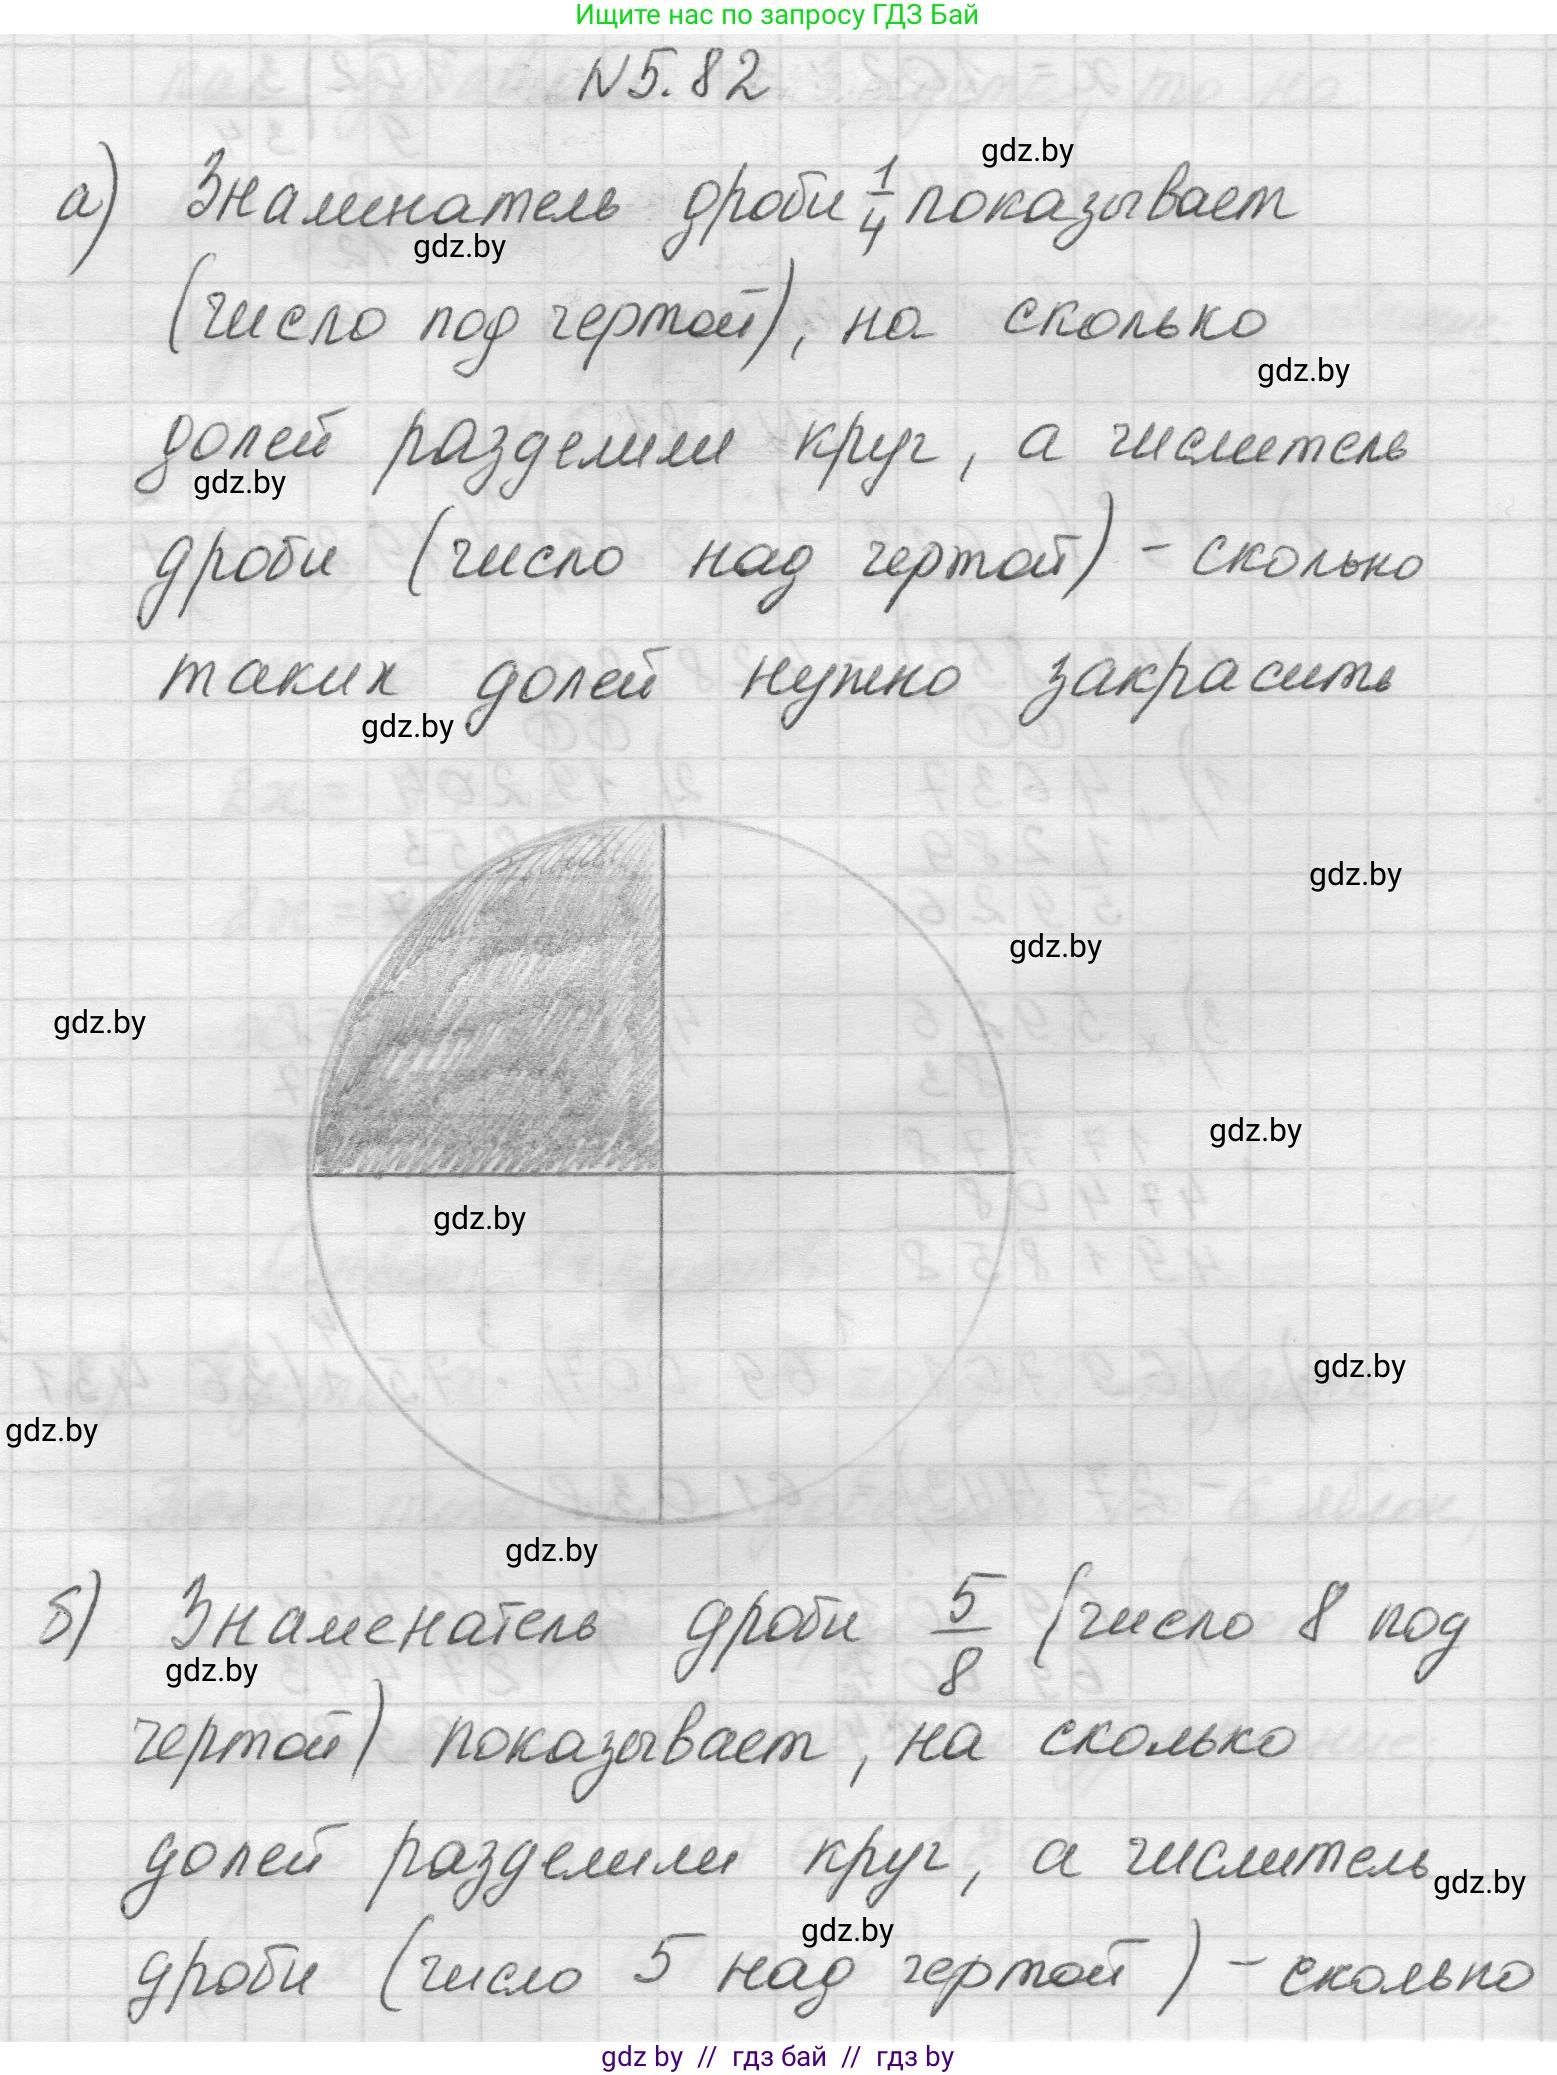 Ищите нас по запросу ГДЗ Бай
N5.82
gdz.by
а) Знаминатель дроби 1/4 показывает
gdz.by
(число под чертой), на сколько
gdz.by
долей разделили круг, а числитель
gdz.by
дроби (число над чертой) - сколько
таких долей нужно закрасить
gdz.by
gdz.by
gdz.by
gdz.by
gdz.by
gdz.by
gdz.by
gdz.by
gdz.by
б) Знаменатель дроби 5/8 (число 8 под
gdz.by
чертой) показывает, на сколько
долей разделили круг, а числитель
gdz.by
gdz.by
дроби (число 5 над чертой) - сколько
gdz by // гдз бай // гдз by